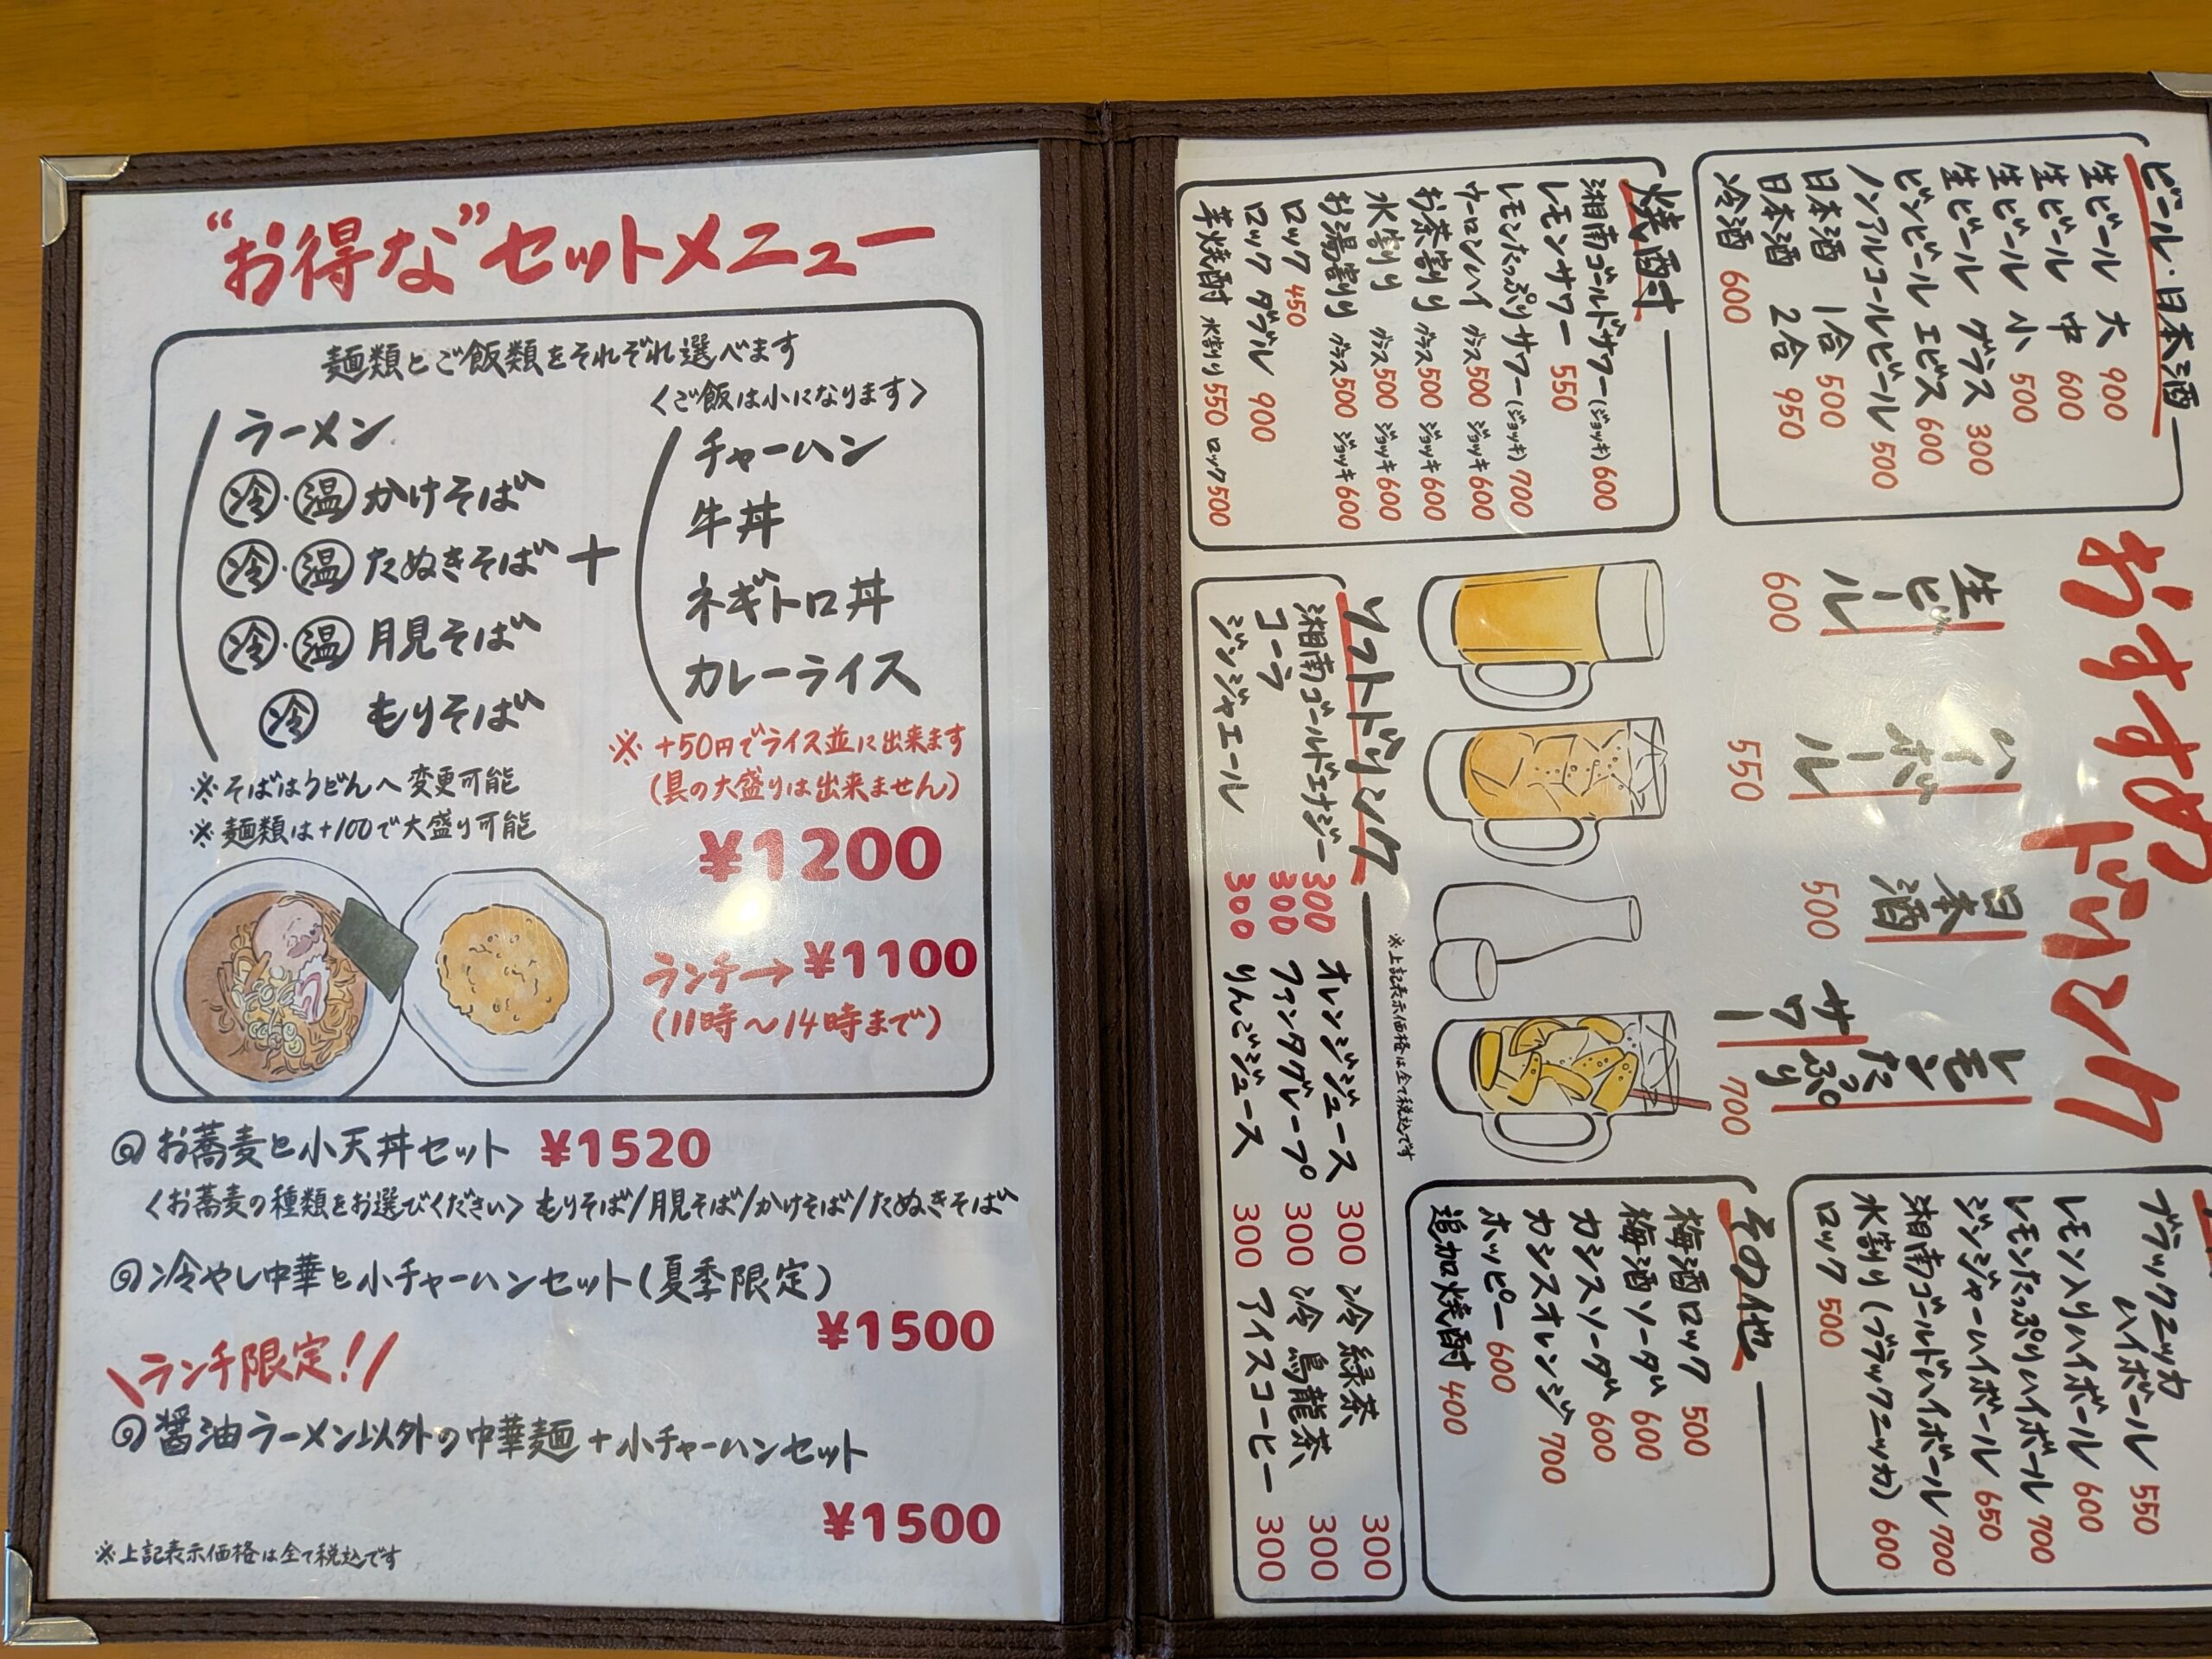 “お得な”セットメニュー
麺類とご飯類をそれぞれ選べます
〈ご飯は小になります〉
ラーメン
冷・温 かけそば
冷・温 たぬきそば
冷・温 月見そば
冷 もりそば
+
チャーハン
牛丼
ネギトロ丼
カレーライス
※そばはうどんへ変更可能
※麺類は+100で大盛り可能
※+50円でライス並に出来ます
(具の大盛りは出来ません)
¥1200
ランチ→¥1100
(11時～14時まで)
◎お蕎麦と小天丼セット ¥1520
〈お蕎麦の種類をお選びください〉もりそば/月見そば/かけそば/たぬきそば
◎冷やし中華と小チャーハンセット(夏季限定)
¥1500
\ランチ限定!/
◎醤油ラーメン以外の中華麺+小チャーハンセット
¥1500
※上記表示価格は全て税込です
おすすめドリンク
生ビール 600
ハイボール 550
日本酒 500
レモンたっぷりサワー 700
ビール・日本酒
生ビール 大 900
生ビール 中 600
生ビール 小 500
生ビール グラス 300
ビンビール エビス 600
ノンアルコールビール 500
日本酒 1合 500
日本酒 2合 950
冷酒 600
焼酎
湘南ゴールドサワー(ジョッキ) 600
レモンサワー 550
レモンたっぷりサワー(ジョッキ) 700
ウーロンハイ グラス500 ジョッキ600
お茶割り グラス500 ジョッキ600
水割り グラス500 ジョッキ600
お湯割り グラス500 ジョッキ600
ロック 450
ロック ダブル 900
芋焼酎 水割り550 ロック500
ブラックニッカ
ハイボール 550
レモン入りハイボール 600
レモンたっぷりハイボール 700
ジンジャーハイボール 650
湘南ゴールドハイボール 700
水割り(ブラックニッカ) 600
ロック 500
その他
梅酒ロック 500
梅酒ソーダ 600
カシスソーダ 600
カシスオレンジ 700
ホッピー 600
追加焼酎 400
※上記表示価格は全て税込です
ソフトドリンク
湘南ゴールドエナジー 300
コーラ 300
ジンジャエール 300
オレンジジュース 300
ファンタグレープ 300
りんごジュース 300
冷 緑茶 300
冷 烏龍茶 300
アイスコーヒー 300